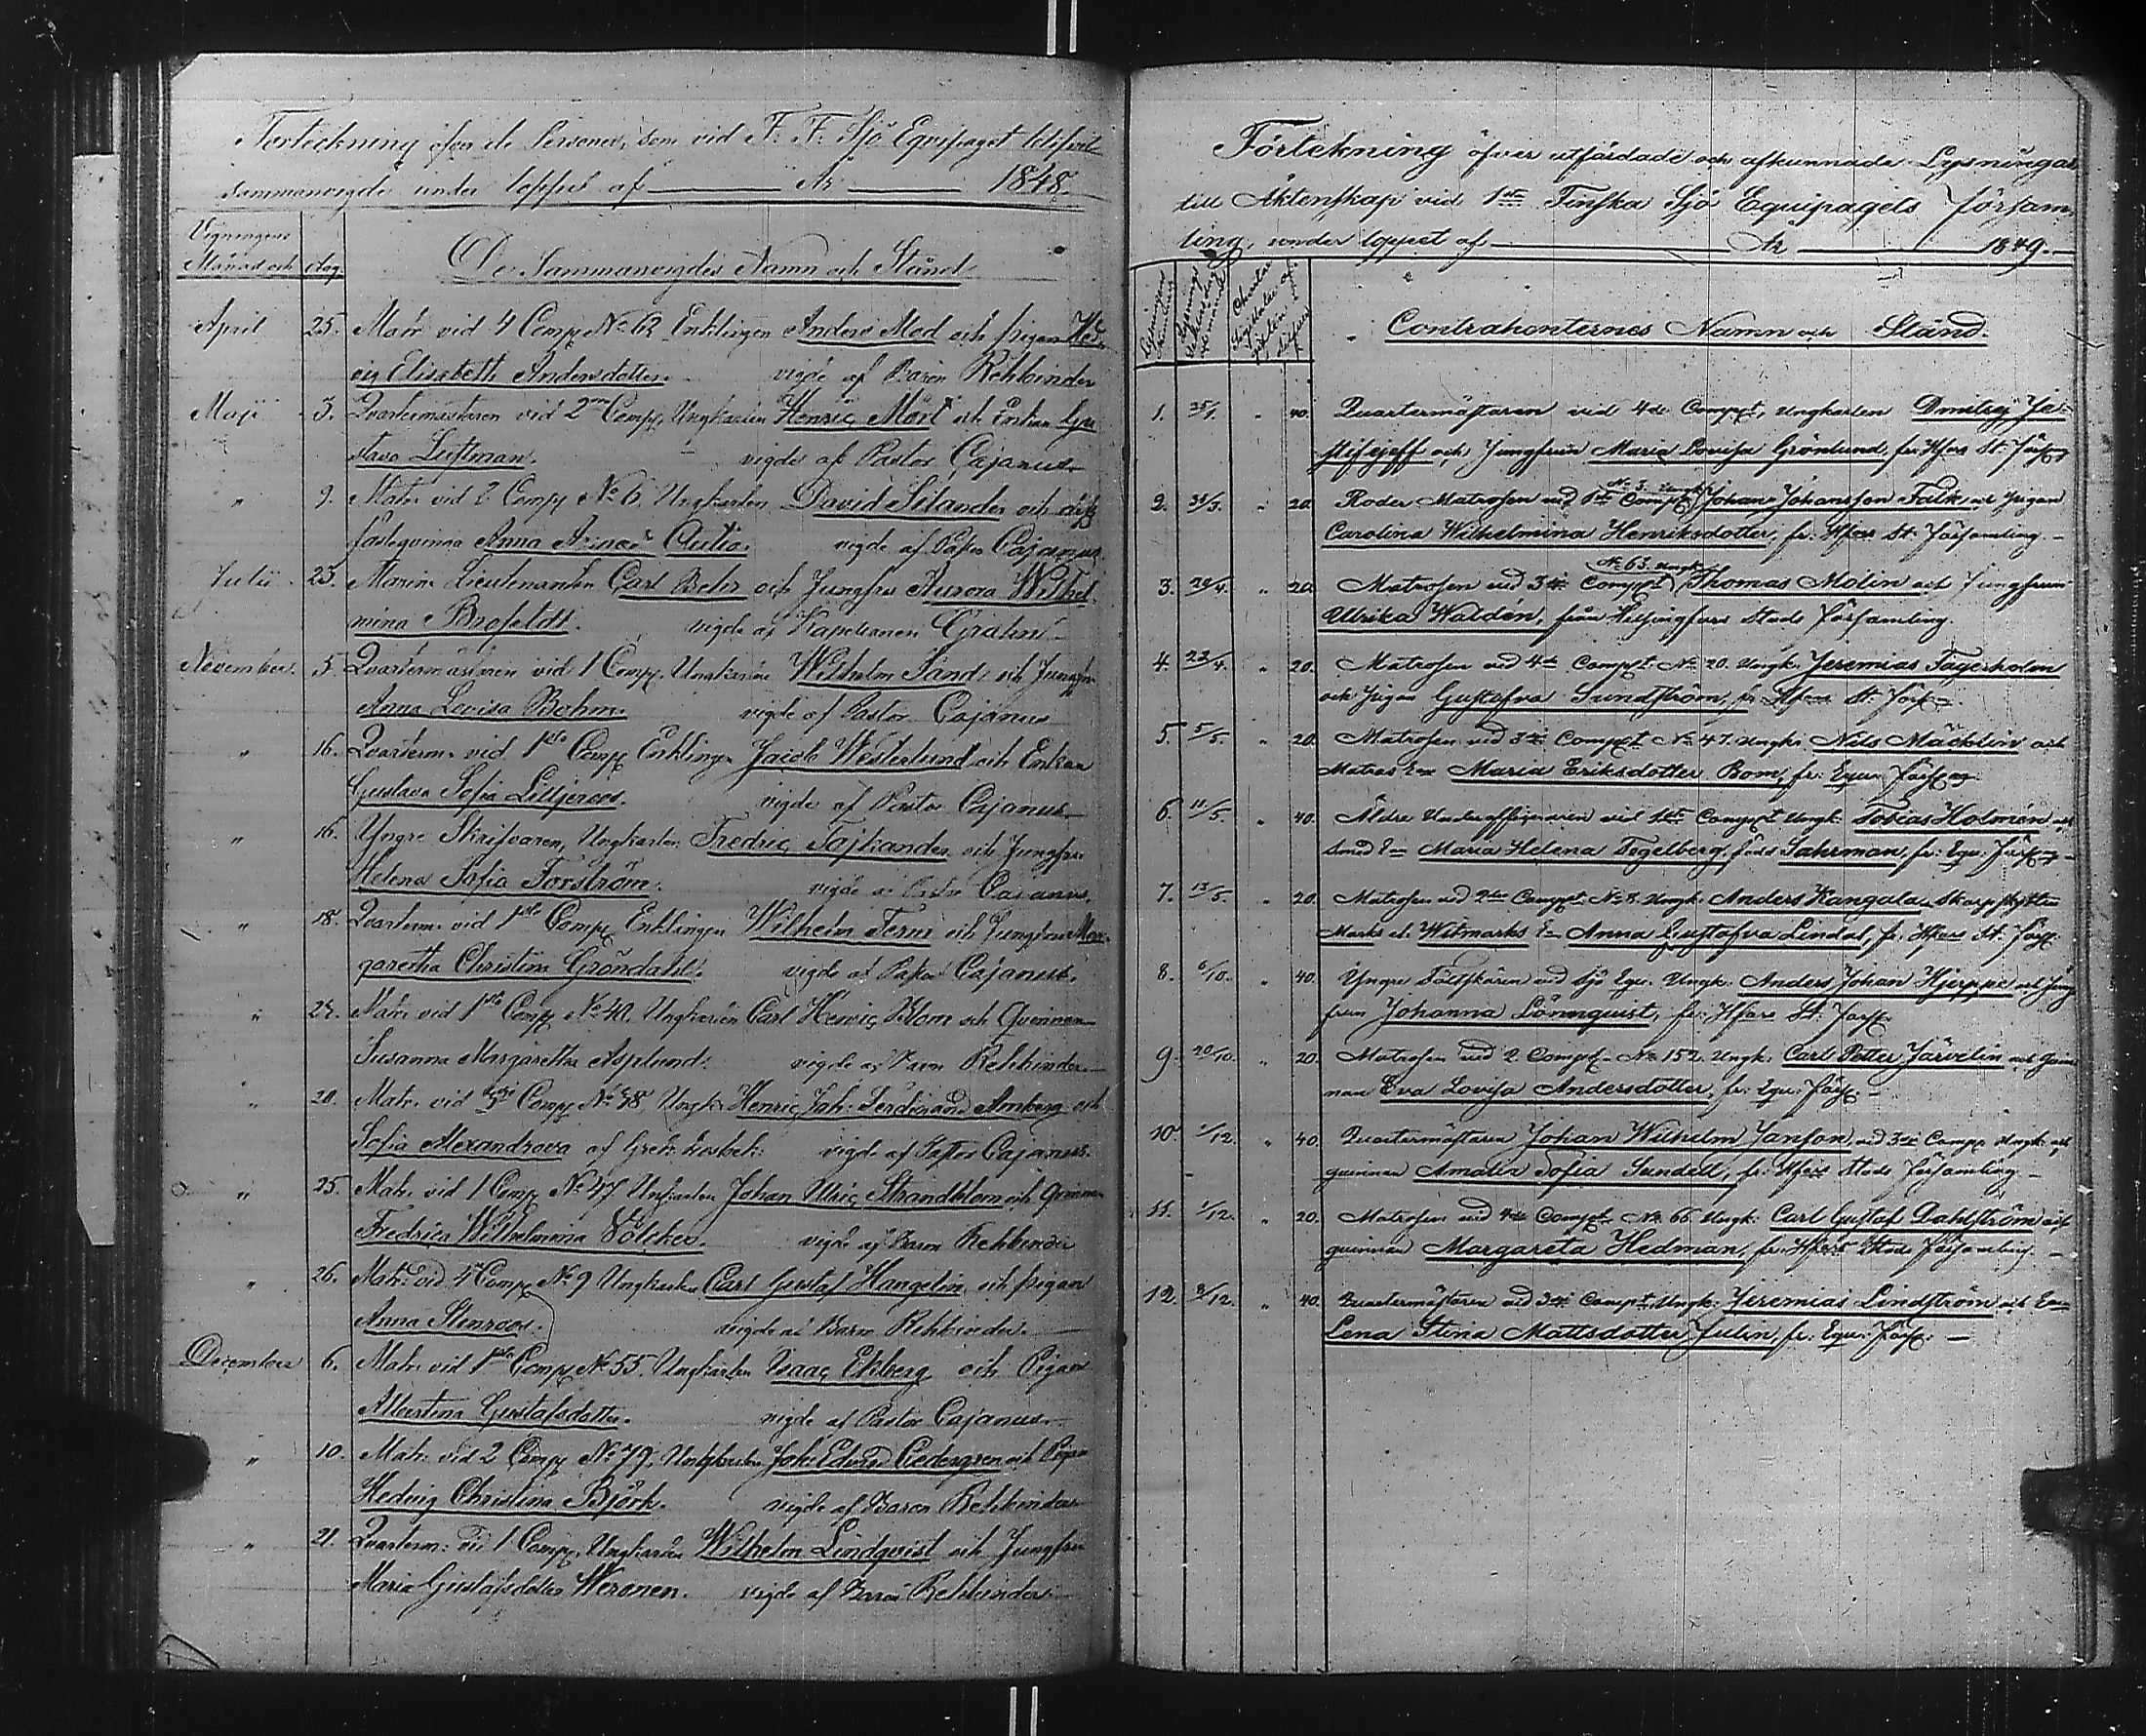 Förteckning öfver de Personer, som vid F. F. Sjö Equipaget blifvit
sammanvigde under loppet af År 1848.
Vigningens
Månad och dag
De Sammanvigdes Namn och Stånd
April 25. Matr. vid 4 Comp. No 62 Enklingen Anders Mod och pigan Hed-
vig Elisabeth Andersdotter. vigde af Baron Rehbinder
Maji 3. Qvartermästaren vid 2 Comp. Ungkarlen Henric Mört och Enkan Gu-
stava Luftman. vigde af Pastor Cajanus
" 9. Matr. vid 2 Comp No 6 Ungkarlen David Selander och
fästeqvinna Anna vigde af Pastor Cajanus.
Julii 23. Marin Lieutenanten Carl Behr och Jungfru Aurora Wilhel-
mina Brofeldt. vigde af Kapellanen Grahn
November 5. Qvartermästaren vid 1 Comp. Ungkarlen Wilhelm Sand och Jungfru
Anna Lovisa Bohm. vigde af Pastor Cajanus
" 16. Qvarterm. vid 1sta Comp Enklingen Jacob Westerlund och Enkan
Gustava Sofia Liljeroos. vigde af Pastor Cajanus
" 16. Yngre Skrifvaren, Ungkarlen Fredric Tajkander och Jungfru
Helena Sofia Forström. vigde af Pastor Cajanus.
" 18. Qvarterm. vid 1sta Comp Enklingen Wilhelm Ferm och Jungfru Mar-
garetha Christina Gröndahl. vigde af Pastor Cajanus.
" Matr. vid 1sta Comp No 40, Ungkarlen Carl Henric Blom och Qvinnan
Susanna Margaretha Asplund. vigde af Baron Rehbinder
" 20. Matr. vid Comp No 48, Ungk. Henric Joh: Ferdinand Amberg och
Sofia Alexandrova af Grek. vigde af Pastor Cajanus.
" 25. Matr. vid 1 Comp No 47 Ungkarlen Johan Ulric Strandblom och Qvinnan
Fredrica Wilhelmina Völcker. vigde af Baron Rehbinder
" 26. Matr. vid 4 Comp No 9 Ungkarlen Carl Gustaf Hangelin och pigan
Anna Stenroos. vigde af Baron Rehbinder.
December 6. Matr. vid 1sta Comp No 55. Ungkarlen Isaac Ekberg och Pigan
Albertina Gustafsdotter. vigde af Pastor Cajanus.
" 10. Matr. vid 2 Comp No 79, Ungkarlen Joh: Edvard Cedergren och Pigan
Hedvig Christina Björk. vigde af Baron Rehbinder
" 21. Qvarterm: vid 1 Comp. Ungkarlen Wilhelm Lindqvist och Jungfru
Maria Gustafsdotter Weronen. vigde af Baron Rehbinder
Förtekning öfver utfärdade och afkunnade Lysningar
till Äktenskap vid 1sta Finska Sjö Equipagets försam-
ling, under loppet af År 1849.
Contrahenternes Namn och Stånd.
1. 25/1. " 40. Quartermästaren vid 4de Compt, ungkarlen Dmitrej Je-
stifejeff och Jungfrun Maria Lovisa Grönlund, fr: Hfors St: Förs.
No 3. Ungk.
2. 25/3. " 20. Roder Matrosen vid 1sta Compt Johan Johansson Falk och pigan
Carolina Wilhelmina Henriksdotter, fr. Hfors St. Församling.
No 63. Ungk.
3. 29/4. " 20. Matrosen vid 3dje Compt Thomas Molin och Jungfrun
Ulrika Waldén, från Helsingfors Stads Församling.
4. 23/4. " 20. Matrosen vid 4de Compt No 20. Ungk. Jeremias Fagerholm
och pigan Gustafva Sundström, fr Hfors St. Förs.
5. 5/5. " 20. Matrosen vid 3dje Compt No 47. Ungk: Nils Mäcklin och
Matros Enk Maria Eriksdotter Bom, fr: Equ. Förs.
6. 11/5. " 40. Äldre Underofficeren vid 1sta Compt Ungk: Tobias Holmén och
Smed Enk Maria Helena Fogelberg, född Sahrman, fr: Equ: Förs.
7. 13/5. " 20. Matrosen vid 2dra Compt No 8. Ungk. Anders Kangala, Skarpskytten
Marks el. Witmarks Enk Anna Gustafva Lindal, fr. Hfors St. Förs.
8. 6/10. " 40. Yngre Fältskären vid Sjö Equ. Ungk: Anders Johan Hjerppe och Jung-
frun Johanna Lönnquist, fr: Hfors St. Förs.
9. 20/10. " 20. Matrosen vid 2 Compt No 152. Ungk: Carl Petter Järvelin och Quin-
nan Eva Lovisa Andersdotter, fr: Equ: Förs.
10. 1/12. " 40. Quartermästaren Johan Wilhelm Janson vid 3dje Comp. Ungk. och
quinnan Amalia Sofia Sundell, fr. Hfors Stads Församling
11. 1/12. " 20. Matrosen vid 4de Compt No 66 Ungk: Carl Gustaf Dahlström och
quinnan Margareta Hedman, fr. Hfors Stads Församling.
12. 8/12. " 40. Quartermästaren vid 3dje Compt, Ungk: Jeremias Lindström och Enk
Lena Stina Mattsdotter Julin, fr: Equ: Förs: